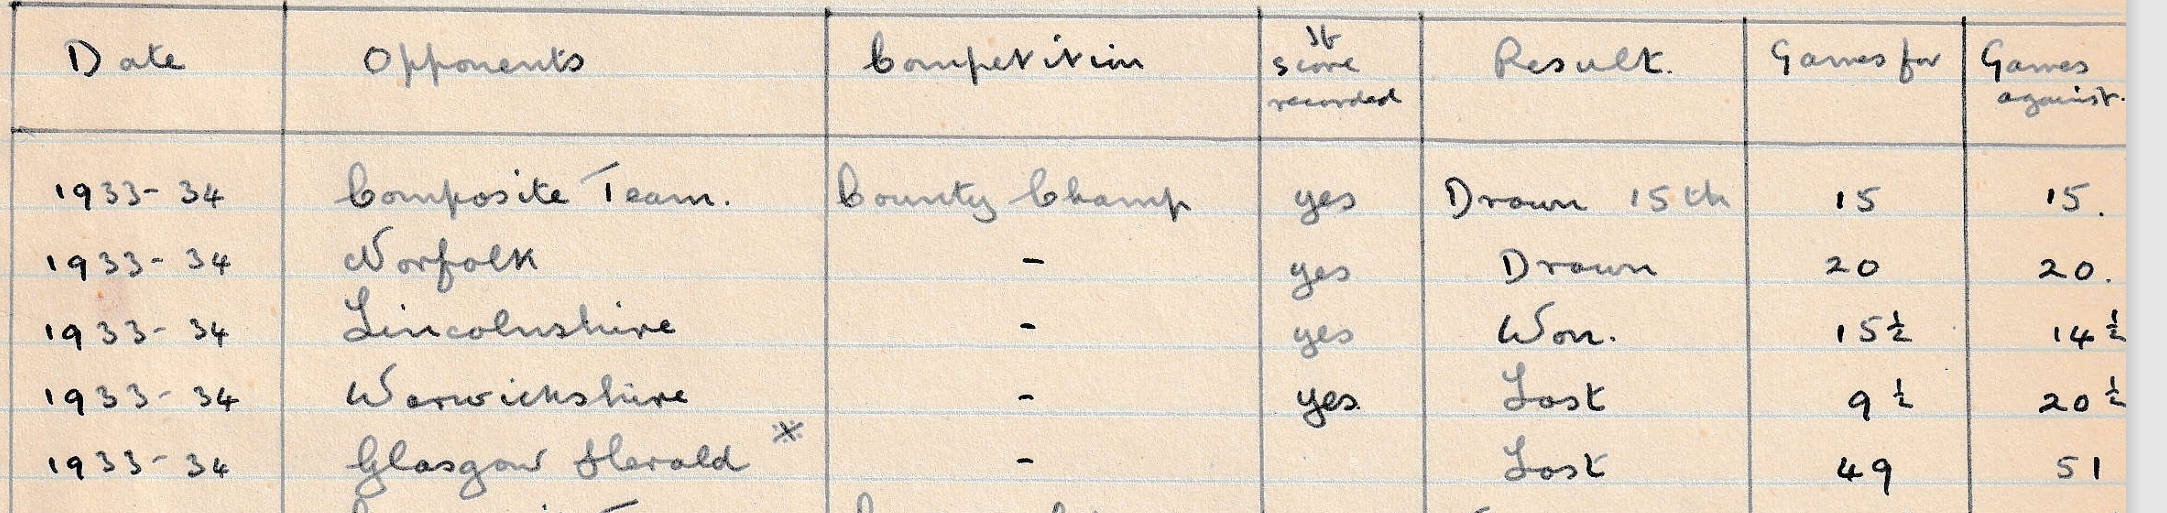 Date Opponents Competition If score recorded Result. Games for Games against.
1933-34 Composite Team. County Champ yes Drawn 15th 15 15.
1933-34 Norfolk - yes Drawn 20 20.
1933-34 Lincolnshire - yes Won. 15½ 14½
1933-34 Warwickshire - yes Lost 9½ 20½
1933-34 Glasgow Herald * - Lost 49 51